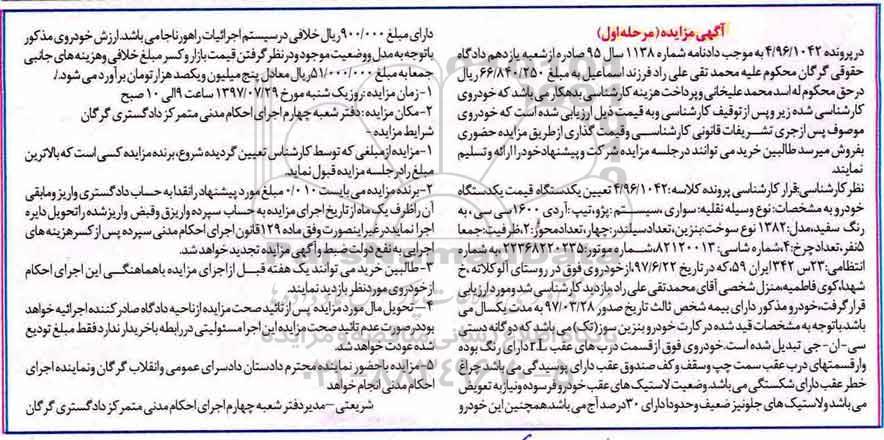 آگهی مزایده (مرحله اول)
در پرونده ۴/۹۶/۱۰۴۲ به موجب دادنامه شماره ۱۱۳۸ سال ۹۵ صادره از شعبه یازدهم دادگاه
حقوقی گرگان محکوم علیه محمد تقی علی راد فرزند اسماعیل به مبلغ ۶۶/۸۴۰/۲۵۰ ریال
در حق محکوم له اسد محمد علیخانی و پرداخت هزینه کارشناسی بدهکار می باشد که خودروی
کارشناسی شده زیر و پس از توقیف کارشناسی و به قیمت ذیل ارزیابی شده است که خودروی
موصوف پس از جری تشریفات قانونی کارشناسی و قیمت گذاری از طریق مزایده حضوری
بفروش میرسد طالبین خرید می توانند در جلسه مزایده شرکت و پیشنهاد خود را ارائه و تسلیم
نمایند.
نظر کارشناسی: قرار کارشناسی پرونده کلاسه: ۴/۹۶/۱۰۴۲ تعیین یکدستگاه قیمت یکدستگاه
خودرو به مشخصات: نوع وسیله نقلیه: سواری، سیستم: پژو، تیپ: آردی ۱۶۰۰ سی سی، به
رنگ سفید، مدل: ۱۳۸۲ نوع سوخت: بنزین، تعداد سیلندر: چهار، تعداد محور: ۲، ظرفیت: جمعا
۵ نفر، تعداد چرخ: ۴، شماره شاسی: ۸۲۱۲۰۰۱۳، شماره موتور: ۲۲۳۶۸۲۲۰۲۳۵ به شماره
انتظامی: ۲۳س ۳۴۲ ایران ۵۹، که در تاریخ ۹۷/۶/۲۲، از خودروی فوق در روستای آلوکلاته، خ
شهدا، کوی فاطمیه، منزل شخصی آقای محمد تقی علی راد، بازدید کارشناسی شد و مورد ارزیابی
قرار گرفت، خودرو مذکور دارای بیمه شخص ثالث تاریخ صدور ۹۷/۰۳/۲۸ به مدت یکسال می
باشد. با توجه به مشخصات قید شده در کارت خودرو بنزین سوز (تک) می باشد که دوگانه دستی
سی-ان-جی تبدیل شده است. خودروی فوق از قسمت درب های عقب ۲L دارای رنگ بوده
وار قسمتهای درب عقب سمت چپ و سقف و کف صندوق عقب دارای پوسیدگی می باشد چراغ
خطر عقب دارای شکستگی می باشد. وضعیت لاستیک های عقب خودرو فرسوده و نیاز به تعویض
می باشد و لاستیک های جلو نیز ضعیف و حدودا دارای ۳۰ درصد آج می باشد همچنین این خودرو
دارای مبلغ ۹۰۰/۰۰۰ ریال خلافی در سیستم اجرائیات راهور ناجا می باشد. ارزش خودروی مذکور
با توجه به مدل و وضعیت موجود و در نظر گرفتن قیمت بازار و کسر مبلغ خلافی و هزینه های جانبی
جمعا به مبلغ ۵۱/۰۰۰/۰۰۰ ریال معادل پنج میلیون و یکصد هزار تومان برآورد می شود./
۱- زمان مزایده: روز یک شنبه مورخ ۱۳۹۷/۰۷/۲۹ ساعت ۹ الی ۱۰ صبح
۲- مکان مزایده: دفتر شعبه چهارم اجرای احکام مدنی متمرکز دادگستری گرگان
شرایط مزایده-
۱- مزایده از مبلغی که توسط کارشناس تعیین گردیده شروع، برنده مزایده کسی است که بالاترین
مبلغ را در جلسه مزایده قبول نماید.
۲- برنده مزایده می بایست ۰/۰۱۰ مبلغ مورد پیشنهاد را نقدا به حساب دادگستری واریز و مابقی
آن را ظرف یک ماه از تاریخ اجرای مزایده به حساب سپرده واریز و قبض واریز شده را تحویل دایره
اجرا نماید در غیر اینصورت وفق ماده ۱۲۹ قانون اجرای احکام مدنی سپرده پس از کسر هزینه های
اجرایی به نفع دولت ضبط و آگهی مزایده تجدید خواهد شد.
۳- طالبین خرید می توانند یک هفته قبل از اجرای مزایده با هماهنگی این اجرای احکام
از خودروی مورد نظر بازدید نمایند.
۴- تحویل مال مورد مزایده پس از تائید صحت مزایده از ناحیه دادگاه صادر کننده اجرائیه خواهد
بود در صورت عدم تائید صحت مزایده این اجرا مسئولیتی در رابطه با خریدار ندارد فقط مبلغ تودیع
شده عودت خواهد شد.
۵- مزایده با حضور نماینده محترم دادستان دادسرای عمومی و انقلاب گرگان و نماینده اجرای
احکام مدنی انجام خواهد
شریعتی- مدیر دفتر شعبه چهارم اجرای احکام مدنی متمرکز دادگستری گرگان